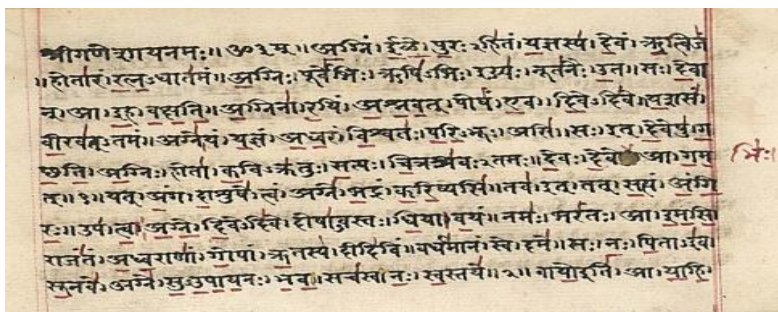 श्रीगणेशायनमः॥ॐ३म्॥अग्निं।ईळे।पुरःऽहितं।यज्ञस्य।देवं।ऋत्विजं
॥होतारं।रत्नऽधातमं॥अग्निः।पूर्वेभिः।ऋषिऽभिः।ईड्यः।नूतनैः।उत॥सः।देवा
न्।आ।इह।वक्षति॥अग्निना।रयिं।अश्नवत्।पोषं।एव।दिवेऽदिवे॥यशसं
वीरवत्ऽतमं॥अग्नेयं।यज्ञं।अध्वरं।विश्वतः।परिऽभूः।असि॥सः।इत्।देवेषु।ग
च्छति॥अग्निः।होता।कविऽक्रतुः।सत्यः।चित्रश्रवःऽतमः॥देवः।देवे आ।गम
भिः।
त्॥१॥यत्।अंग।दाशुषे।त्वं।अग्ने।भद्रं।करिष्यसि॥तव।इत्।तत्।सत्यं।अंगि
रः॥उप।त्वा।अग्ने।दिवेऽदिवे।दोषाऽवस्तः।धिया।वयं॥नमः।भरंतः।आ।इमसि
राजंतं।अध्वराणां।गोपां।ऋतस्य।दीदिविं॥वर्धमानं।स्वे।दमे॥सः।नः।पिताऽइव
सूनवे।अग्ने।सुऽउपायनः।भव॥सचस्व।नः।स्वस्तये॥२॥वायोइति।आ।याहि